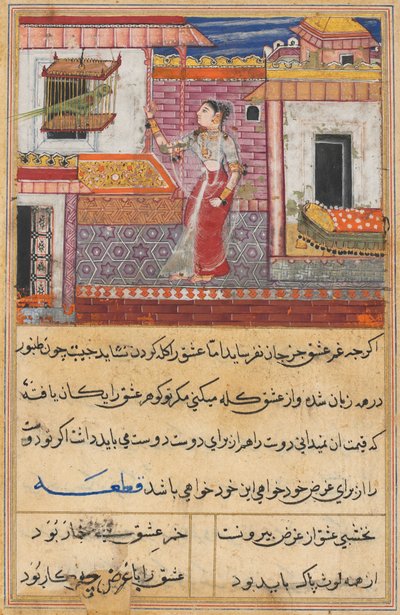 اکرچه غم عشق جز جان نفرساید اما عشق را کله کردن نشاید چون
همه زبان شده واز عشق کله میکنی مکر تو کوهر عشق رایکان یافته
که قیمت ان نمیدانی دوست را هم از برای دوست دوست می باید داشت اکر تو دوست
را از برای غرض خود خواهی این خود خواهی باشد قطعه
نخشبی عشق از غرض بیرونست عشق بود
از همه لوث پاک باید بود عشق را با غرض چه کار بود